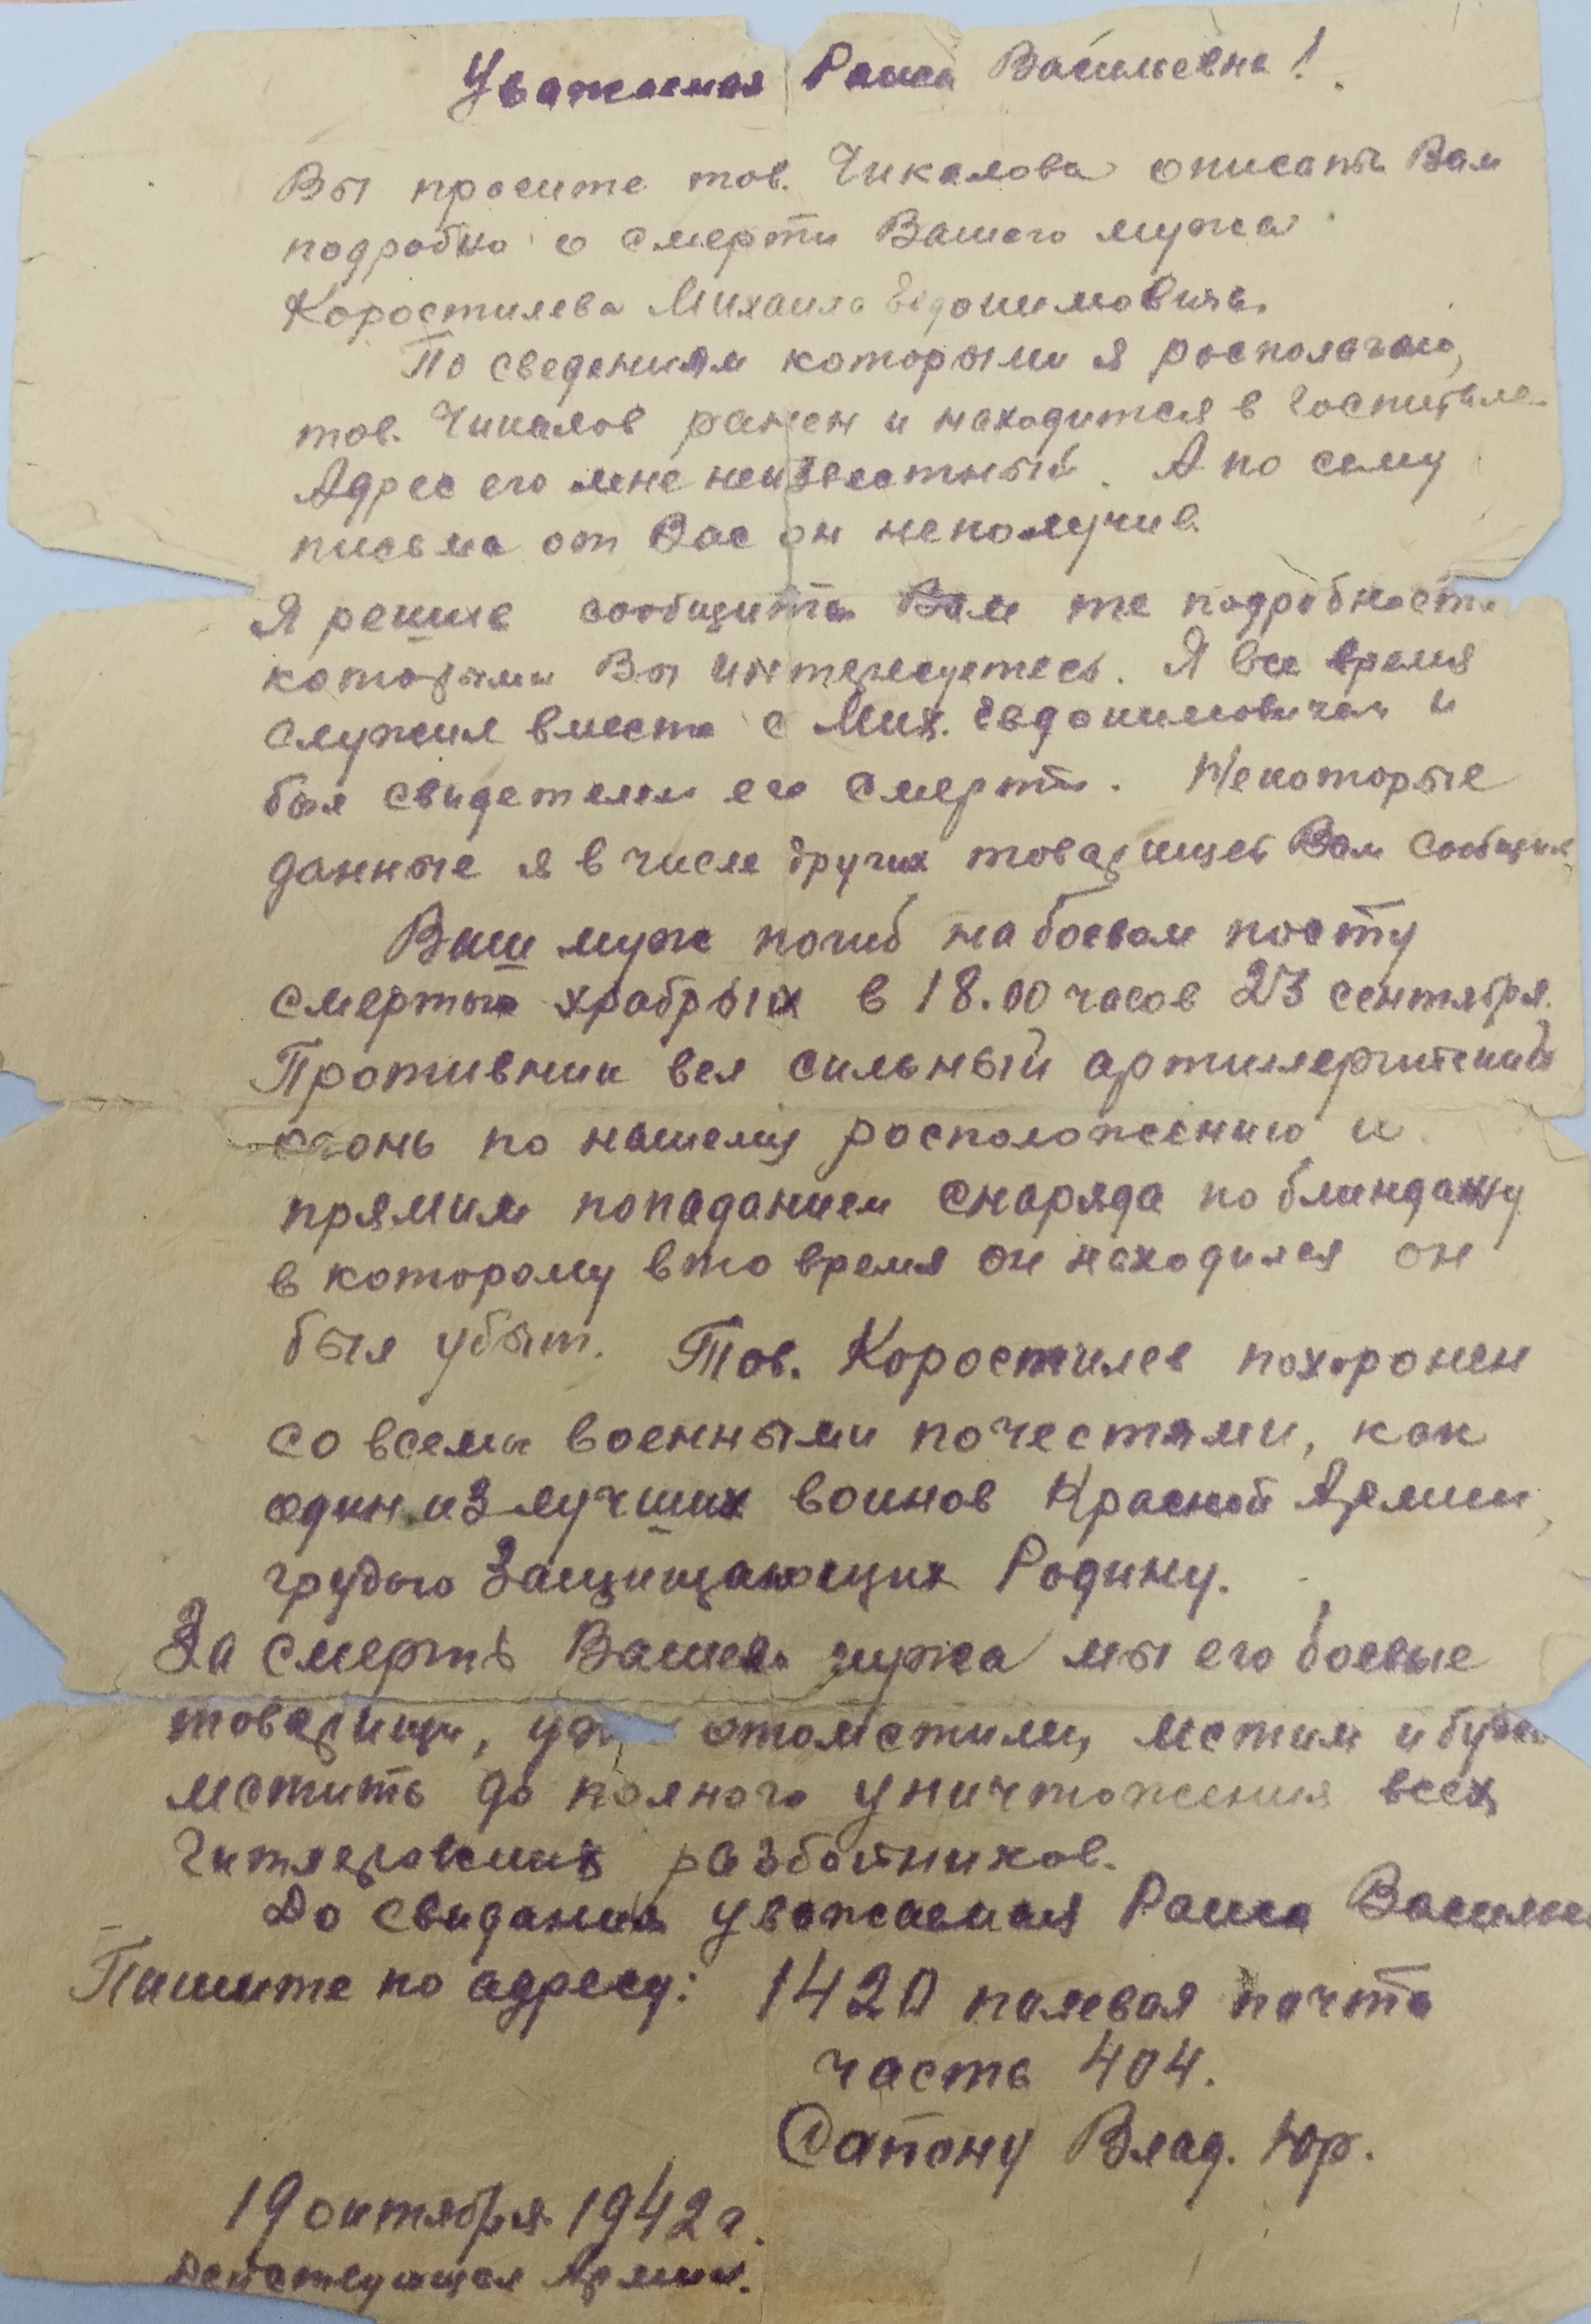 Уважаемая Раиса Васильевна!
Вы просите тов. Чикалова описать Вам
подробно о смерти Вашего мужа
Коростилева Михаила Евдокимовича.
По сведениям которыми я росполагаю,
тов. Чикалов ранен и находится в госпитале.
Адрес его мне неизвестный. А по сему
письма от Вас он неполучив.
Я решив сообщить Вам те подробности
которыми Вы интересуетесь. Я все время
служил вместе с Мих. Евдокимовичем и
был свидетелем его смерти. Некоторые
данные я в числе других товарищей Вам сообщил
Ваш муж погиб на боевом посту
смертью храбрых в 18.00 часов 23 сентября.
Противник вел сильный артилерийский
огонь по нашему росположению и
прямим попаданием снаряда по блиндажу
в которому в то время он находился он
был убыт. Тов. Коростилев похоронен
со всеми военными почестями, как
один из лучших воинов Красной Армии,
грудью защищающих Родину.
За смерть Вашего мужа мы его боевые
товарищи, отомстили, мстим и будем
мстить до полного уничтожения всех
гитлеровских разбойников.
До свидания уважаемая Раиса
Пишите по адресу: 1420 полевая почта
часть 404.
Сапону Влад. Юр.
19 октября 1942 г.
Действующая Армия.